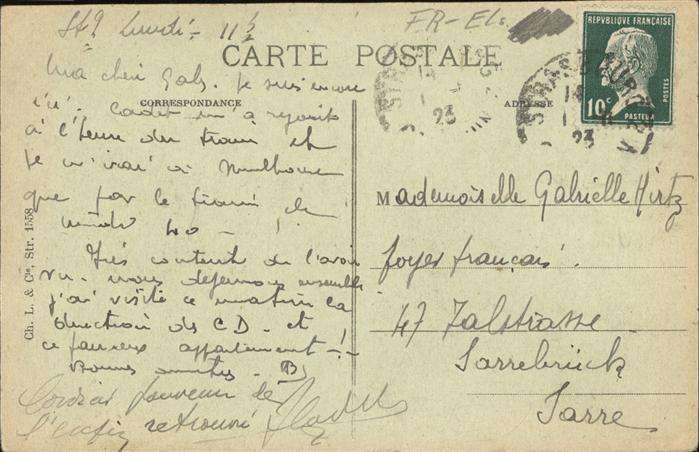 Stg Lundi - 11 ½
FR-El.
CARTE POSTALE
CORRESPONDANCE
ADRESSE
RÉPUBLIQUE FRANÇAISE
10c
POSTES
PASTEUR
STRASBOURG
23
Ma chère Gab. Je suis encore
ici. Cadet m'a rejoint
à l'heure du train et
je n'irai à Mulhouse
que par le train de
minuit 40 - !
Très content de l'avoir
vu - nous déjeunons ensemble
j'ai visité ce matin la
direction des CD - et
ce fameux appartement ! -
Bonnes amitiés - B
Cordial souvenir de
l'enfin retrouvé
Mademoiselle Gabrielle Hirtz
foyer français.
47 Talstrasse -
Sarrebrück
Sarre
Ch. L. & Cie, Str. 1558